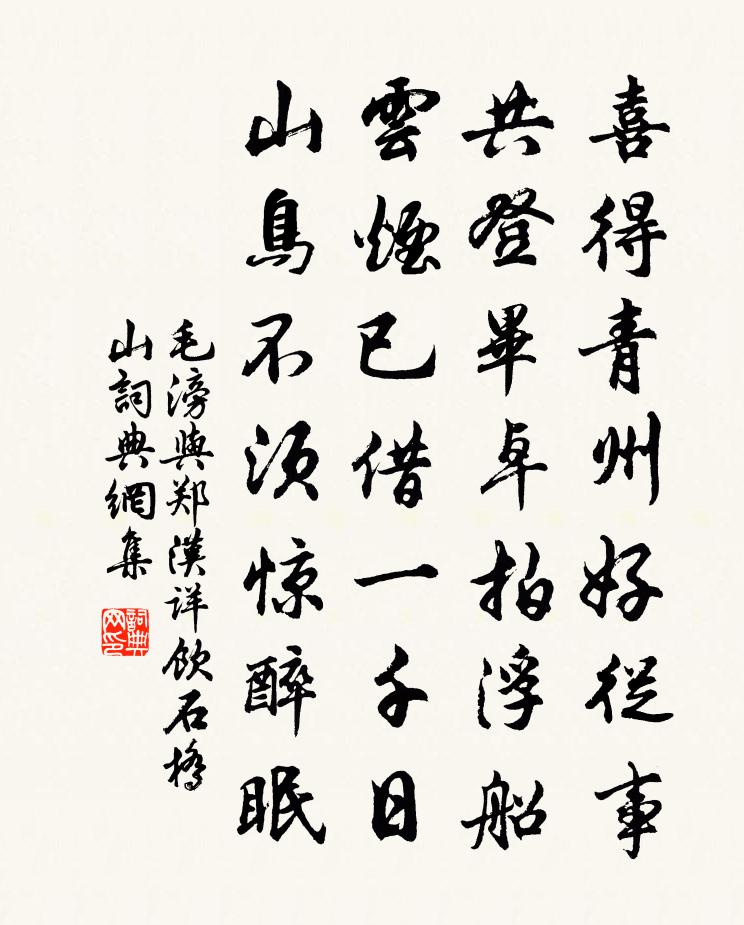 喜得青州好從事
共登畢卓拍浮船
雲煙已借一千日
山鳥不須惊醉眠
毛滂與郑漢详飲石橋
山詞典網集
詞典
网印